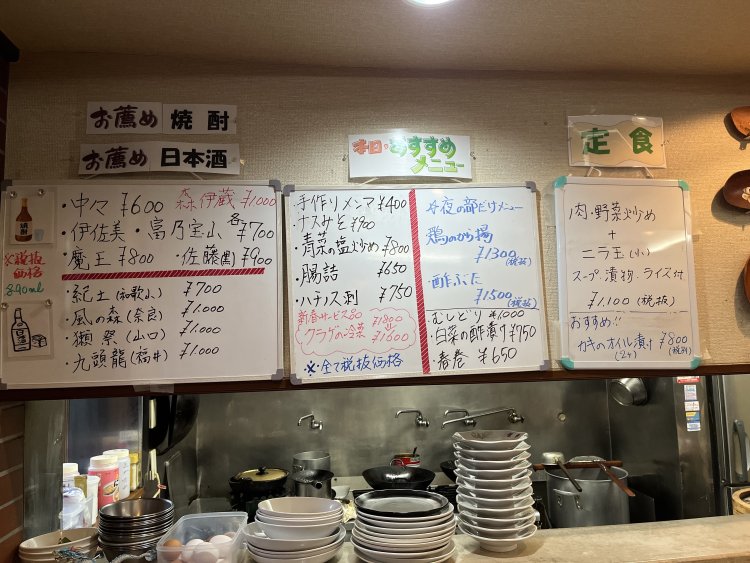 お薦め 焼酎
お薦め 日本酒
・中々 ¥600
森伊蔵 ¥1,000
・伊佐美・富乃宝山 各¥700
・魔王 ¥800 ・佐藤(黒) ¥900
・紀土(和歌山) ¥700
・風の森(奈良) ¥1,000
・獺祭(山口) ¥1,000
・九頭龍(福井) ¥1,000
焼酎
※税抜
価格
890ml
日本酒
本日のおすすめ
メニュー
・手作りメンマ ¥400
・ナスみそ ¥900
・青菜の塩炒め ¥800
・腸詰 ¥650
・ハチノス刺 ¥750
新春サービス品
クラゲの冷菜
¥1800
¥1600
※全て税抜価格
夜の部だけメニュー
鶏のから揚
¥1300(税抜)
・酢ぶた
¥1500(税抜)
・むしどり ¥1,000
・白菜の酢漬け ¥750
・春巻 ¥650
定食
肉・野菜炒め
+
ニラ玉(小)
スープ、漬物、ライス付
¥1,100(税抜)
おすすめ!!
カキのオイル漬け ¥800
(2ヶ) (税別)